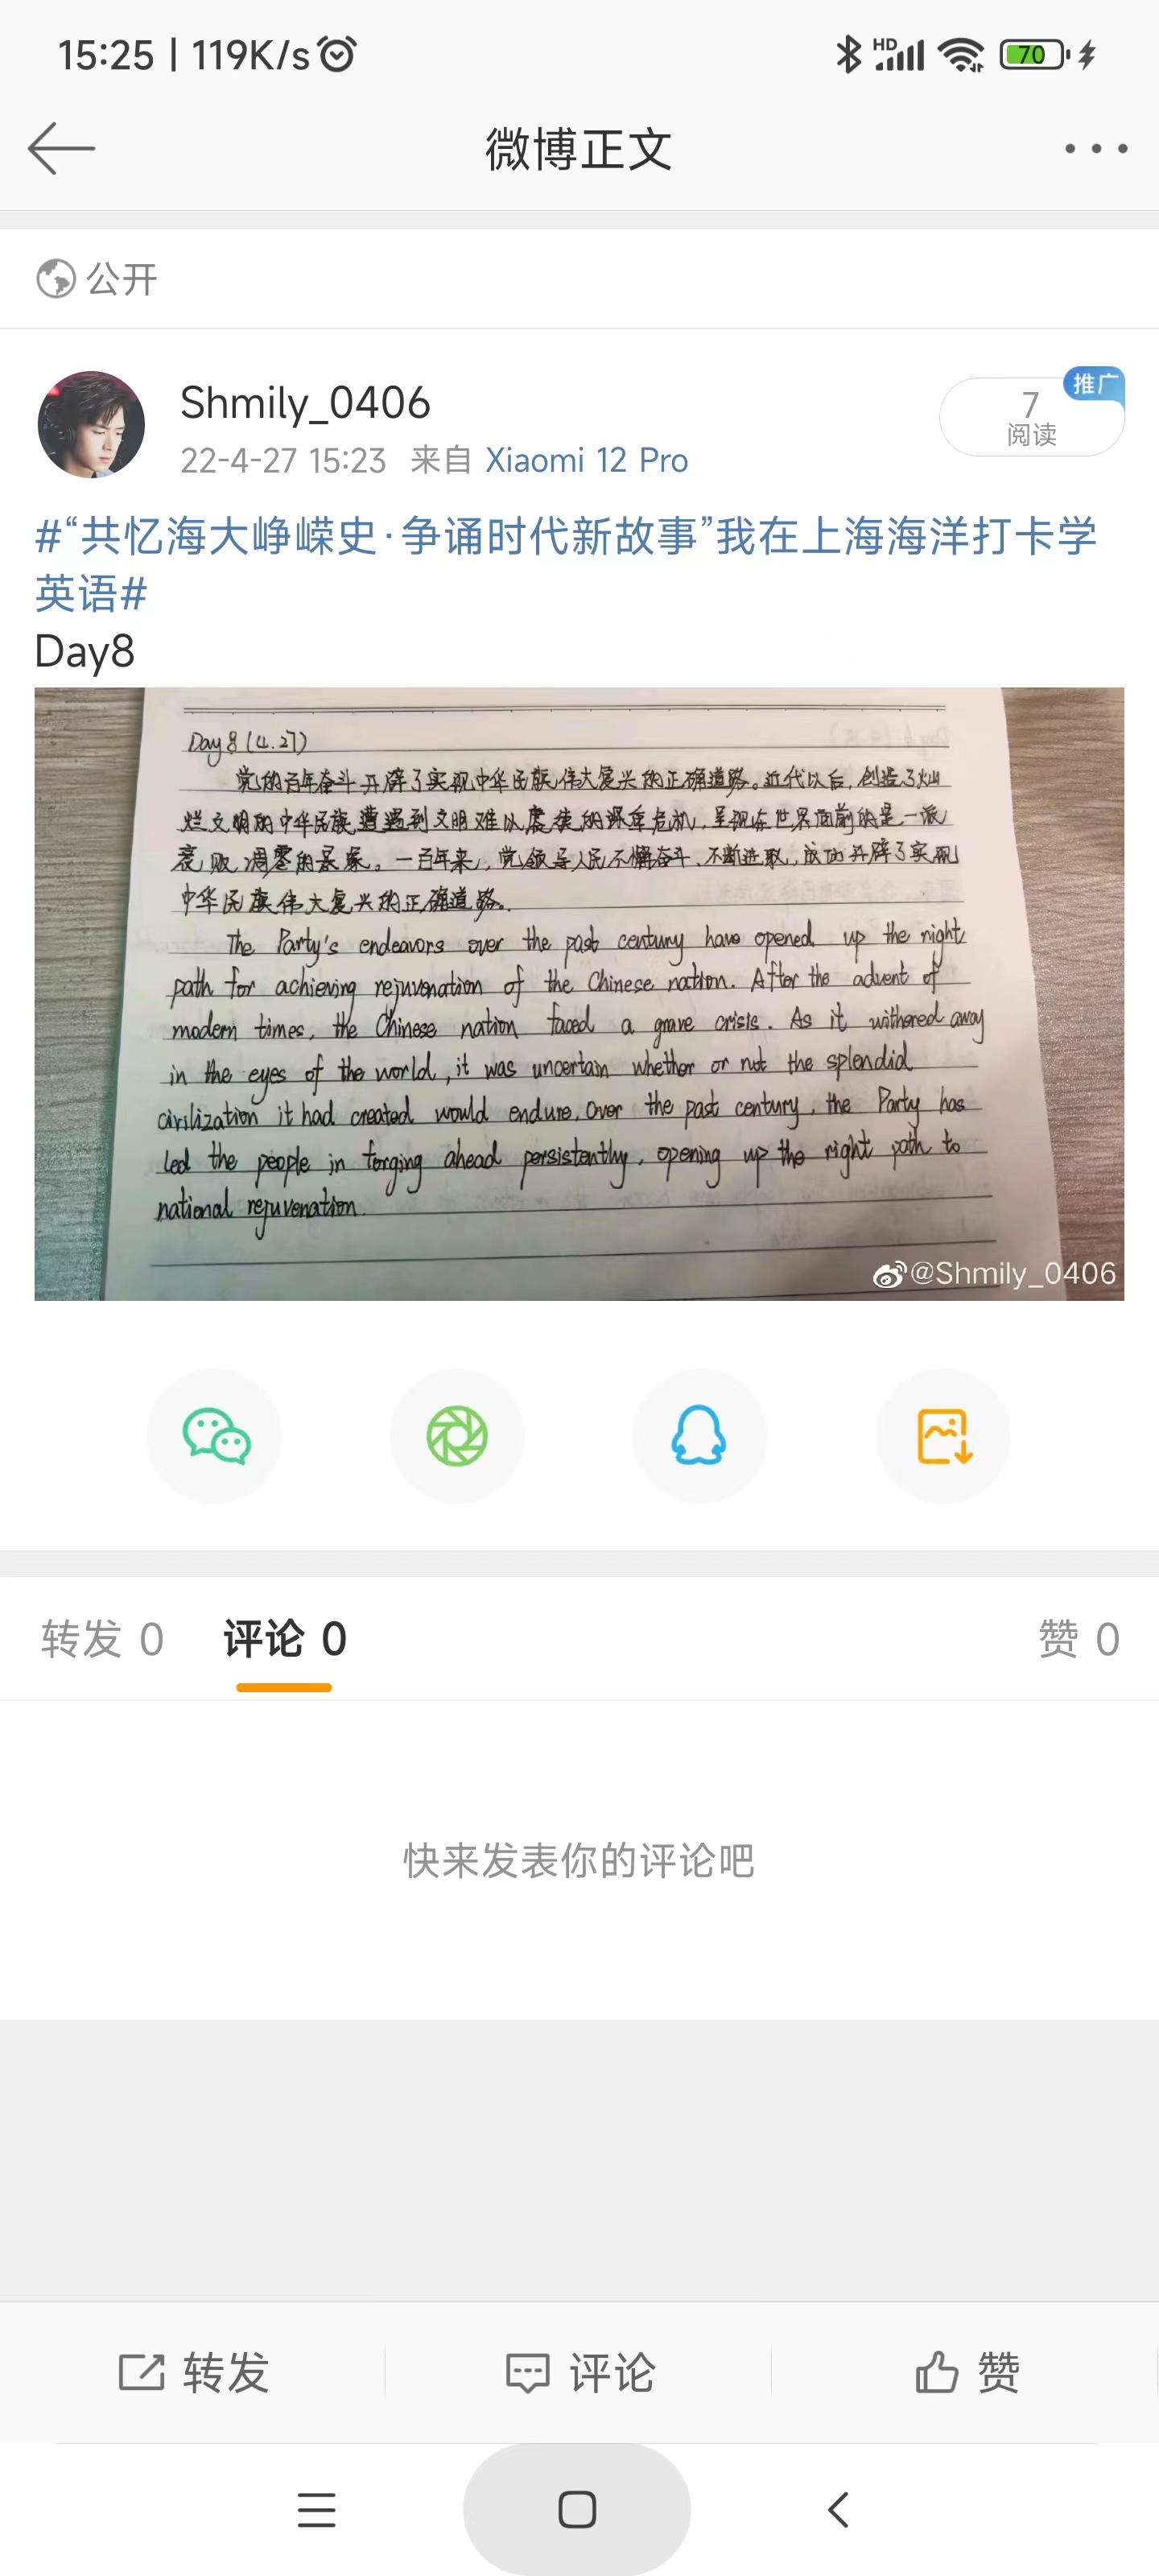 15:25 | 119K/s
HD
70
微博正文
公开
Shmily_0406
22-4-27 15:23 来自 Xiaomi 12 Pro
推广
7
阅读
#“共忆海大峥嵘史·争诵时代新故事”我在上海海洋打卡学
英语#
Day8
Day 8 (4.27)
党的百年奋斗开辟了实现中华民族伟大复兴的正确道路。近代以后,创造了灿
烂文明的中华民族遭遇到文明难以赓续的深重危机,呈现在世界面前的是一派
衰败凋零的景象。一百年来,党领导人民不懈奋斗、不断进取,成功开辟了实现
中华民族伟大复兴的正确道路。
The Party's endeavors over the past century have opened up the right
path for achieving rejuvenation of the Chinese nation. After the advent of
modern times, the Chinese nation faced a grave crisis. As it withered away
in the eyes of the world, it was uncertain whether or not the splendid
civilization it had created would endure. Over the past century, the Party has
led the people in forging ahead persistently, opening up the right path to
national rejuvenation.
@Shmily_0406
转发 0
评论 0
赞 0
快来发表你的评论吧
转发
评论
赞